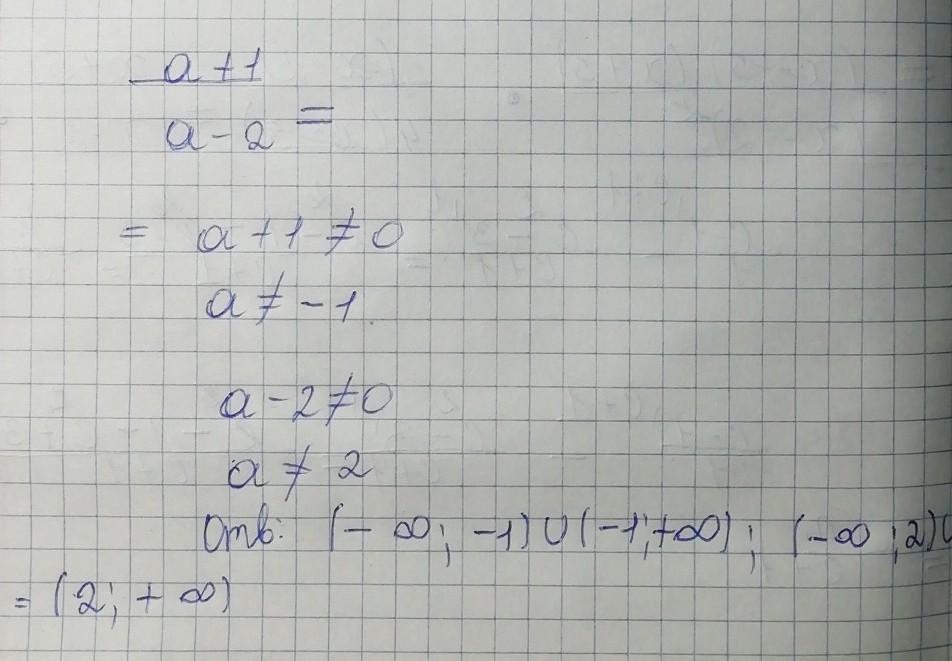 a+1
a-2 =
= a+1≠0
a≠-1.
a-2≠0
a≠2
Отв: (-∞; -1)∪(-1;+∞); (-∞;2)∪
= (2; +∞)